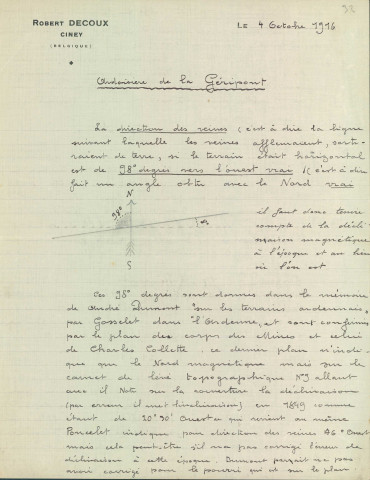 92
ROBERT DECOUX
CINEY
(BELGIQUE)
LE 4 Octobre 1916
Ardoisière de la Géripont
La direction des veines (c'est à dire la ligne
suivant laquelle les veines affleuraient, sorti-
raient de terre, si le terrain était horizontal
est de 98° degrés vers l'ouest vrai) (c'est à dire
fait un angle obtu avec le Nord vrai
N
98°
S
il faut donc tenir
compte de la décli-
naison magnétique
à l'époque et au lieu
où l'on est
Ces 98° degrés sont donnés dans le mémoire
de André Dumont "sur les terrains ardennais"
par Gosselet dans "l'Ardenne", et sont confirmés
par le plan des corps des Mines et celui
de Charles Collette. ce dernier plan n'indi-
que que le Nord magnétique mais sur le
carnet de levé topographique N°3 allant
avec il Note sur la couverture la déclinaison
(par erreur il met l'inclinaison) en 1849 comme
étant de 20°30' Ouest ce qui revient au même
Poncelet indique pour direction des veines Ouest
mais cela peut-être s'il n'a pas corrigé l'erreur de
déclinaison à cette époque. Dumont n'a pas
corrigé pour le et sur le plan